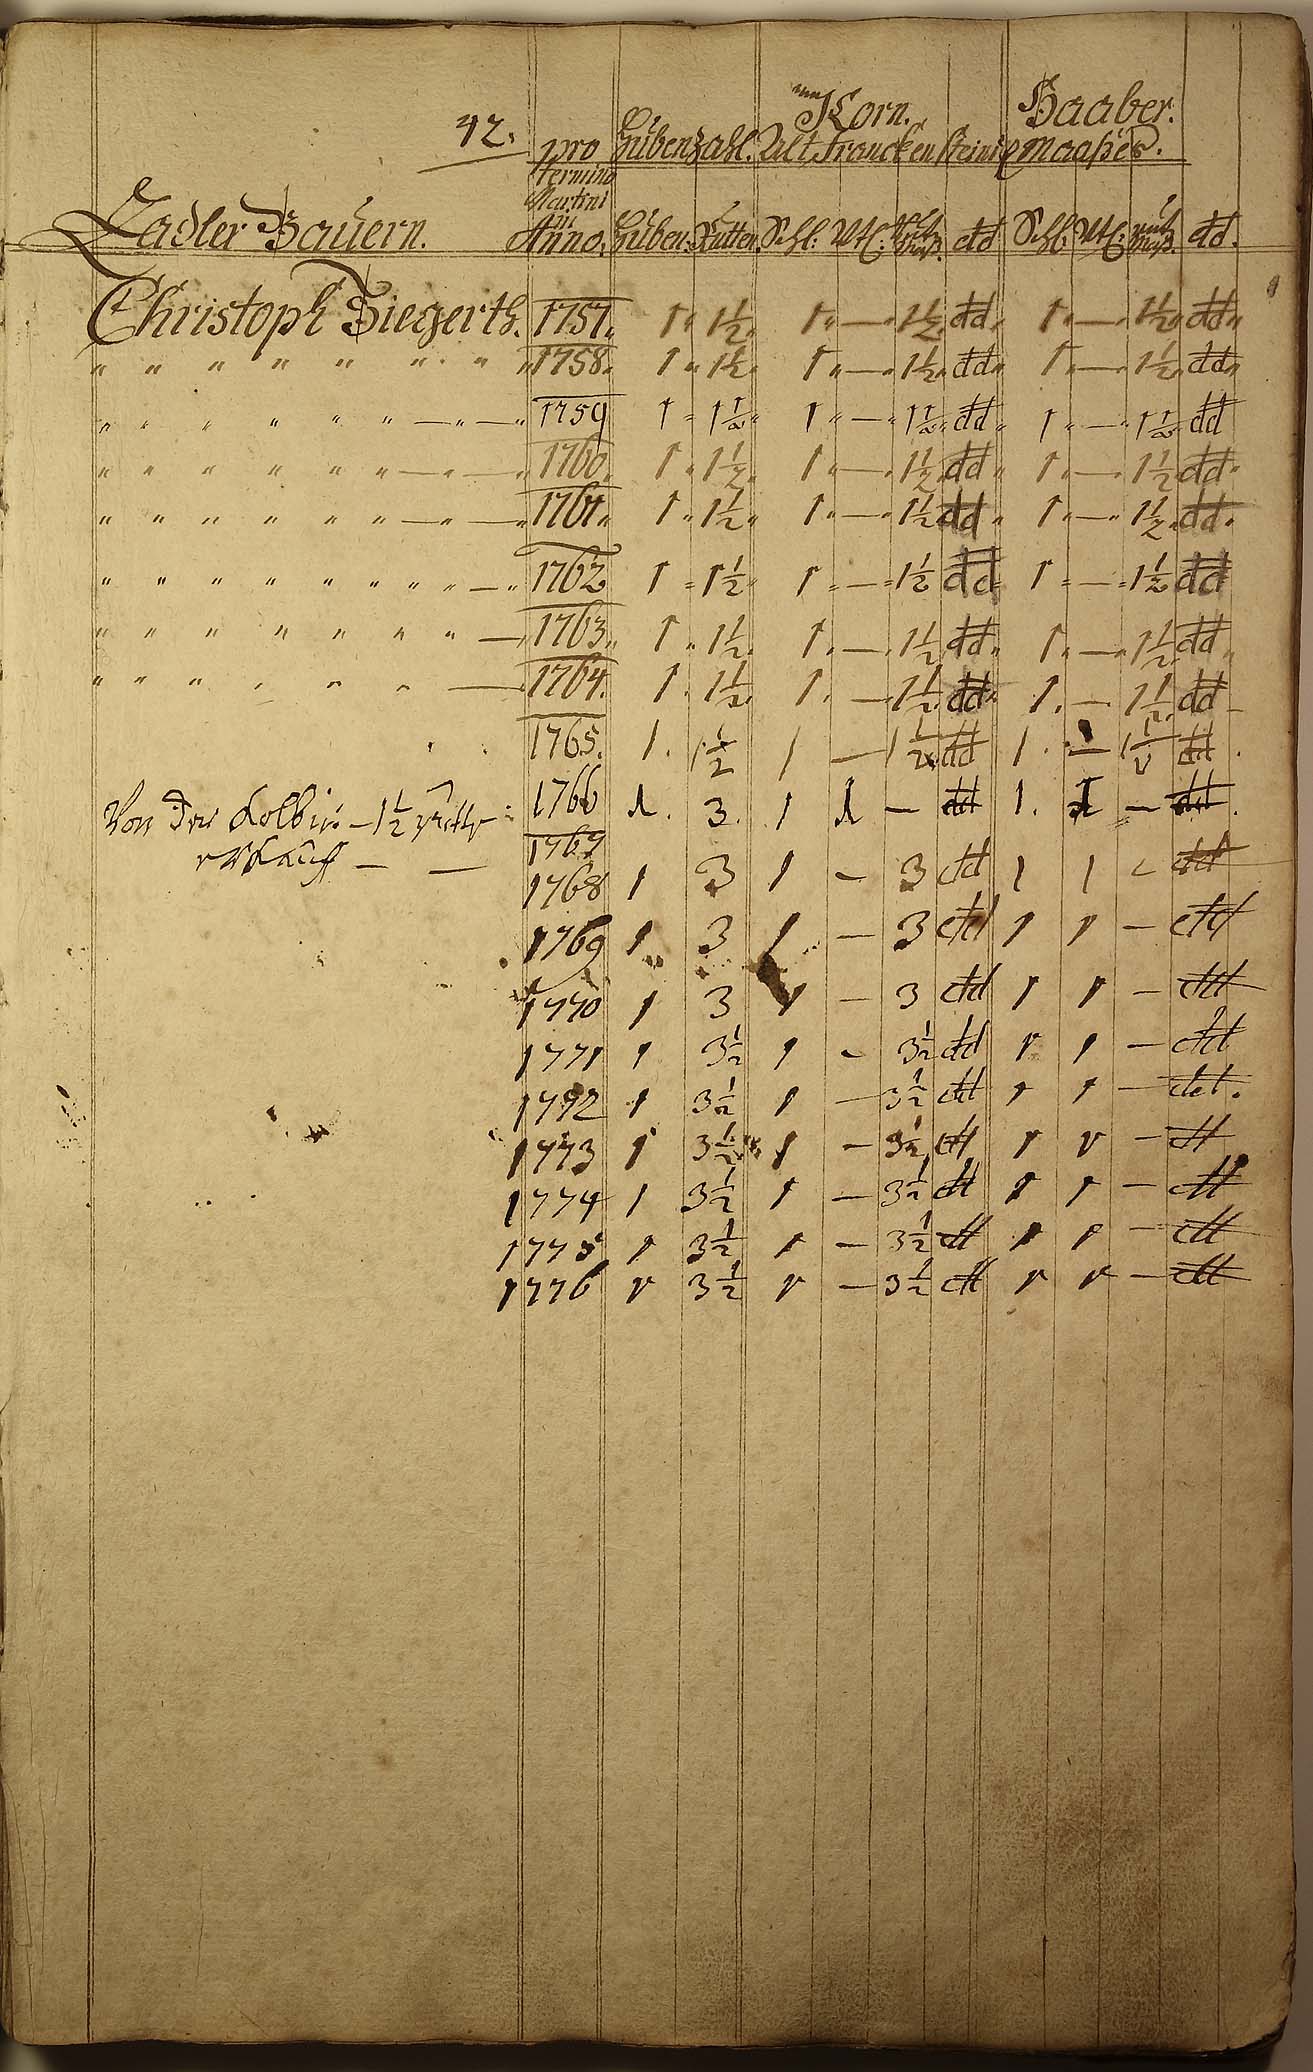 42.
Korn. Haaber.
pro Hübenzahl. Alt Franckensteiniſ Maaßes.
Termino
Martini
in
Zadler Bauern. Anno. Hüben: Rutten. Schl: Vtl: maß. dd Schl: Vtl: maß. dd.
Christoph Siegerth. 1757. 1 " 1½ 1 " — " 1½ dd 1 " — " 1½ dd "
" " " " " " " " 1758. 1 " 1½ 1 " — " 1½ dd 1 " — " 1½ dd "
" " " " " " — " — " 1759 1 " 1½ 1 " — " 1½ dd 1 " — " 1½ dd
" " " " " " — " — " 1760. 1 " 1½ 1 " — " 1½ dd 1 " — " 1½ dd
" " " " " " — " — " 1761 1 " 1½ 1 " — " 1½ dd 1 " — " 1½ dd
" " " " " " " " " — " 1762 1 " 1½ 1 " — " 1½ dd 1 " — " 1½ dd
" " " " " " " — 1763 1 " 1½ 1 " — " 1½ dd 1 " — " 1½ dd
" " " " " " — 1764. 1 . 1½ 1 . — 1½ dd 1 . — 1½ dd
1765. 1 . 1½ 1 — 1½ dd 1 . — 1½ dd
Von der — 1½ 1766 1 . 3. 1 1 — dd 1. 1 — dd
erkauft — — 1767
1768 1 3 1 — 3 dd 1 1 — dd
1769 1 3 1 — 3 dd 1 1 — dd
1770 1 3 1 — 3 dd 1 1 — dd
1771 1 3½ 1 — 3½ dd 1 1 — dd
1772 1 3½ 1 — 3½ dd 1 1 — dd.
1773 1 3½ 1 — 3½ dd 1 1 — dd
1774 1 3½ 1 — 3½ dd 1 1 — dd
1775 1 3½ 1 — 3½ dd 1 1 — dd
1776 1 3½ 1 — 3½ dd 1 1 — dd